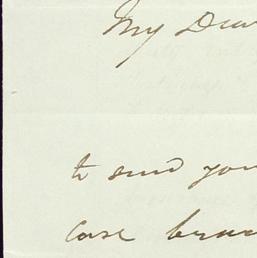 My Dear
to send you
case